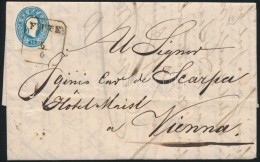 FIUME
A Signor
Cav. de Scarpa
Hôtel Meisl
a
Vienna